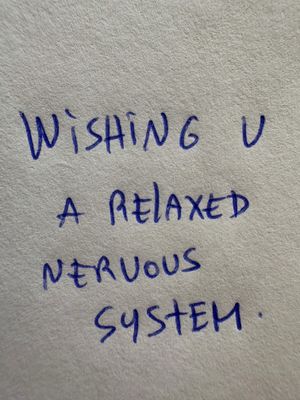 WiSHiNG U
A RElAXED
NERVOUS
SYStEM.